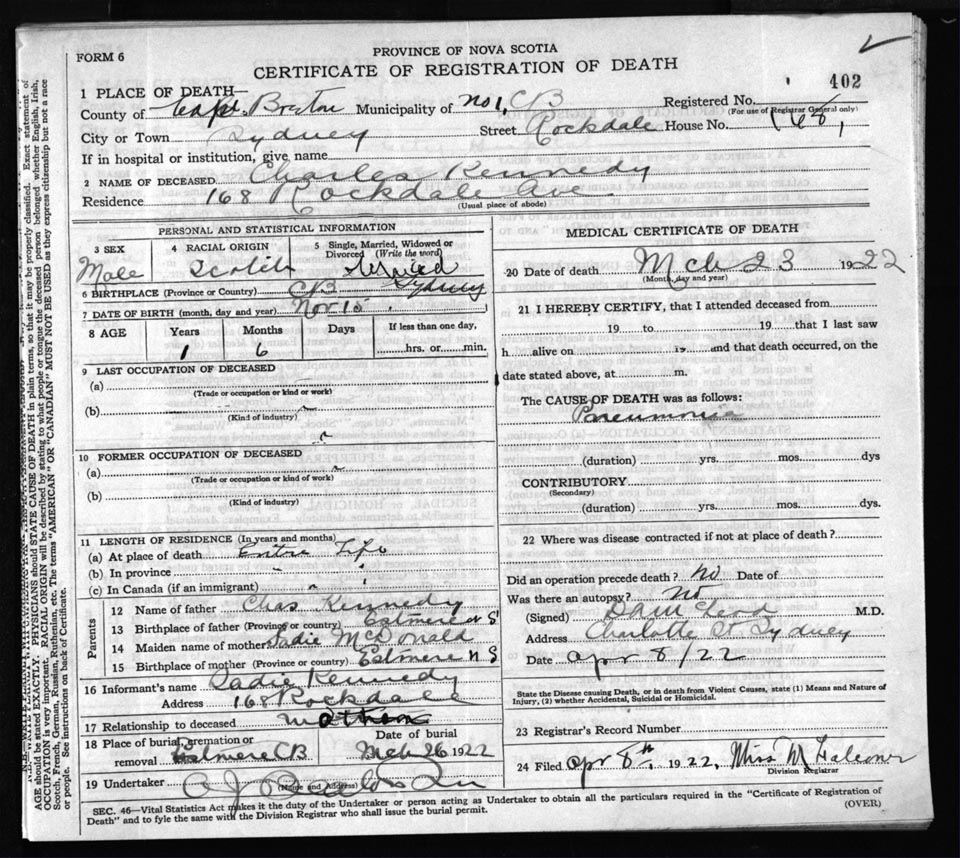 FORM 6
PROVINCE OF NOVA SCOTIA
CERTIFICATE OF REGISTRATION OF DEATH
402
1 PLACE OF DEATH—
County of Cape Breton Municipality of No 1, CB Registered No.
(For use of Registrar General only)
City or Town Sydney Street Rockdale House No. 168,
If in hospital or institution, give name
2 NAME OF DECEASED Charles Kennedy
Residence 168 Rockdale Ave
(Usual place of abode)
PERSONAL AND STATISTICAL INFORMATION
3 SEX 4 RACIAL ORIGIN 5 Single, Married, Widowed or Divorced (Write the word)
Male Scotch
6 BIRTHPLACE (Province or Country) CB Sydney
7 DATE OF BIRTH (month, day and year) Nov 15
8 AGE Years Months Days If less than one day,
1 6 hrs. or min.
9 LAST OCCUPATION OF DECEASED
(a)
(Trade or occupation or kind or work)
(b)
(Kind of industry)
10 FORMER OCCUPATION OF DECEASED
(a)
(Trade or occupation or kind of work)
(b)
(Kind of industry)
11 LENGTH OF RESIDENCE (In years and months)
(a) At place of death Entire Life
(b) In province
(c) In Canada (if an immigrant)
Parents
12 Name of father Chas Kennedy
13 Birthplace of father (Province or country) Estmere N S
14 Maiden name of mother Sadie McDonald
15 Birthplace of mother (Province or country) Estmere N S
16 Informant's name Sadie Kennedy
Address 168 Rockdale
17 Relationship to deceased mother
18 Place of burial, cremation or removal Estmere CB
Date of burial
Mch 26 1922
19 Undertaker
(Name and Address)
MEDICAL CERTIFICATE OF DEATH
20 Date of death Mch 23 1922
(Month, day and year)
21 I HEREBY CERTIFY, that I attended deceased from
19 to 19 that I last saw
h alive on 19 and that death occurred, on the
date stated above, at m.
The CAUSE OF DEATH was as follows:
Pneumonia
(duration) yrs. mos. dys
CONTRIBUTORY
(Secondary)
(duration) yrs. mos. dys.
22 Where was disease contracted if not at place of death?
Did an operation precede death? No Date of
Was there an autopsy? No
(Signed) D A McLeod M.D.
Address Charlotte St Sydney
Date Apr 8/22
State the Disease causing Death, or in death from Violent Causes, state (1) Means and Nature of
Injury, (2) whether Accidental, Suicidal or Homicidal.
23 Registrar's Record Number
24 Filed Apr 8th, 1922, Miss M
Division Registrar
SEC. 46—Vital Statistics Act makes it the duty of the Undertaker or person acting as Undertaker to obtain all the particulars required in the "Certificate of Registration of
Death" and to fyle the same with the Division Registrar who shall issue the burial permit.
(OVER)
AGE should be stated EXACTLY. PHYSICIANS should STATE CAUSE OF DEATH in plain terms, so that it may be properly classified. Exact statement of
OCCUPATION is very important. RACIAL ORIGIN will be described by stating to what people or tongue the deceased person belonged whether English, Irish,
Scotch, French, German, Russian, Ruthenian, etc. The terms "AMERICAN" OR "CANADIAN" MUST NOT BE USED as they express citizenship but not a race
or people. See instructions on back of Certificate.